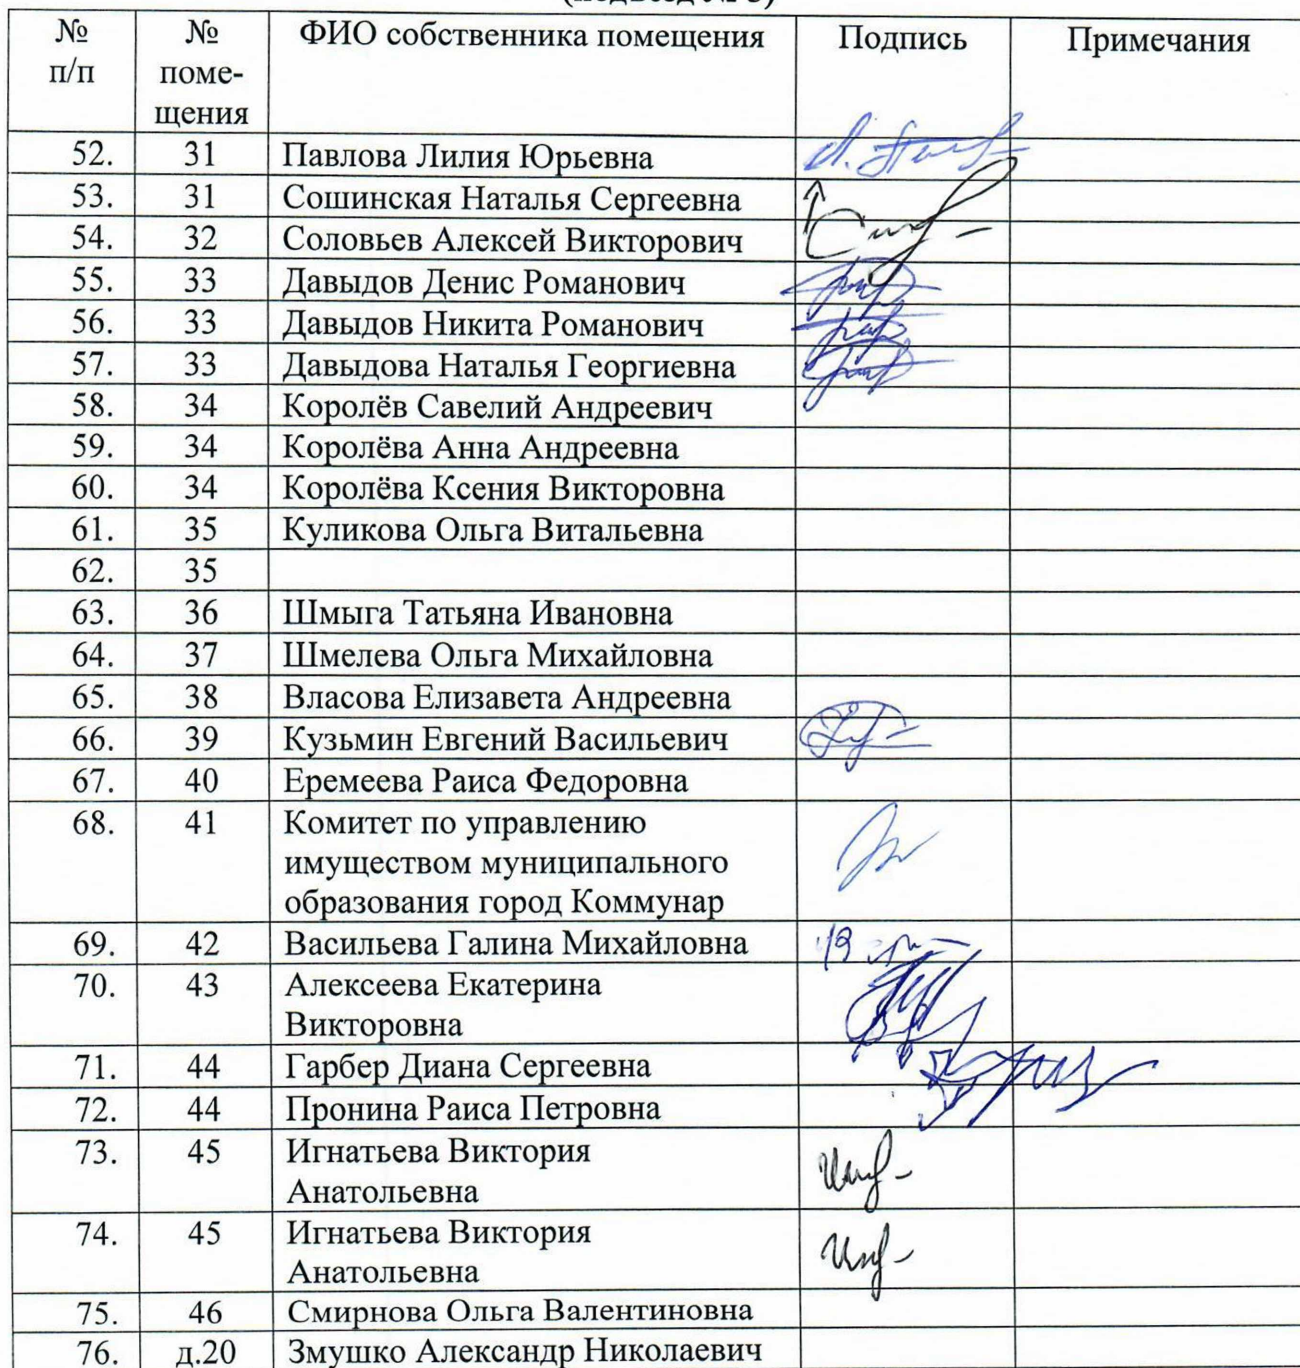 № № ФИО собственника помещения Подпись Примечания
п/п поме-
щения
52. 31 Павлова Лилия Юрьевна
53. 31 Сошинская Наталья Сергеевна
54. 32 Соловьев Алексей Викторович
55. 33 Давыдов Денис Романович
56. 33 Давыдов Никита Романович
57. 33 Давыдова Наталья Георгиевна
58. 34 Королёв Савелий Андреевич
59. 34 Королёва Анна Андреевна
60. 34 Королёва Ксения Викторовна
61. 35 Куликова Ольга Витальевна
62. 35
63. 36 Шмыга Татьяна Ивановна
64. 37 Шмелева Ольга Михайловна
65. 38 Власова Елизавета Андреевна
66. 39 Кузьмин Евгений Васильевич
67. 40 Еремеева Раиса Федоровна
68. 41 Комитет по управлению
имуществом муниципального
образования город Коммунар
69. 42 Васильева Галина Михайловна
70. 43 Алексеева Екатерина
Викторовна
71. 44 Гарбер Диана Сергеевна
72. 44 Пронина Раиса Петровна
73. 45 Игнатьева Виктория
Анатольевна
74. 45 Игнатьева Виктория
Анатольевна
75. 46 Смирнова Ольга Валентиновна
76. д.20 Змушко Александр Николаевич